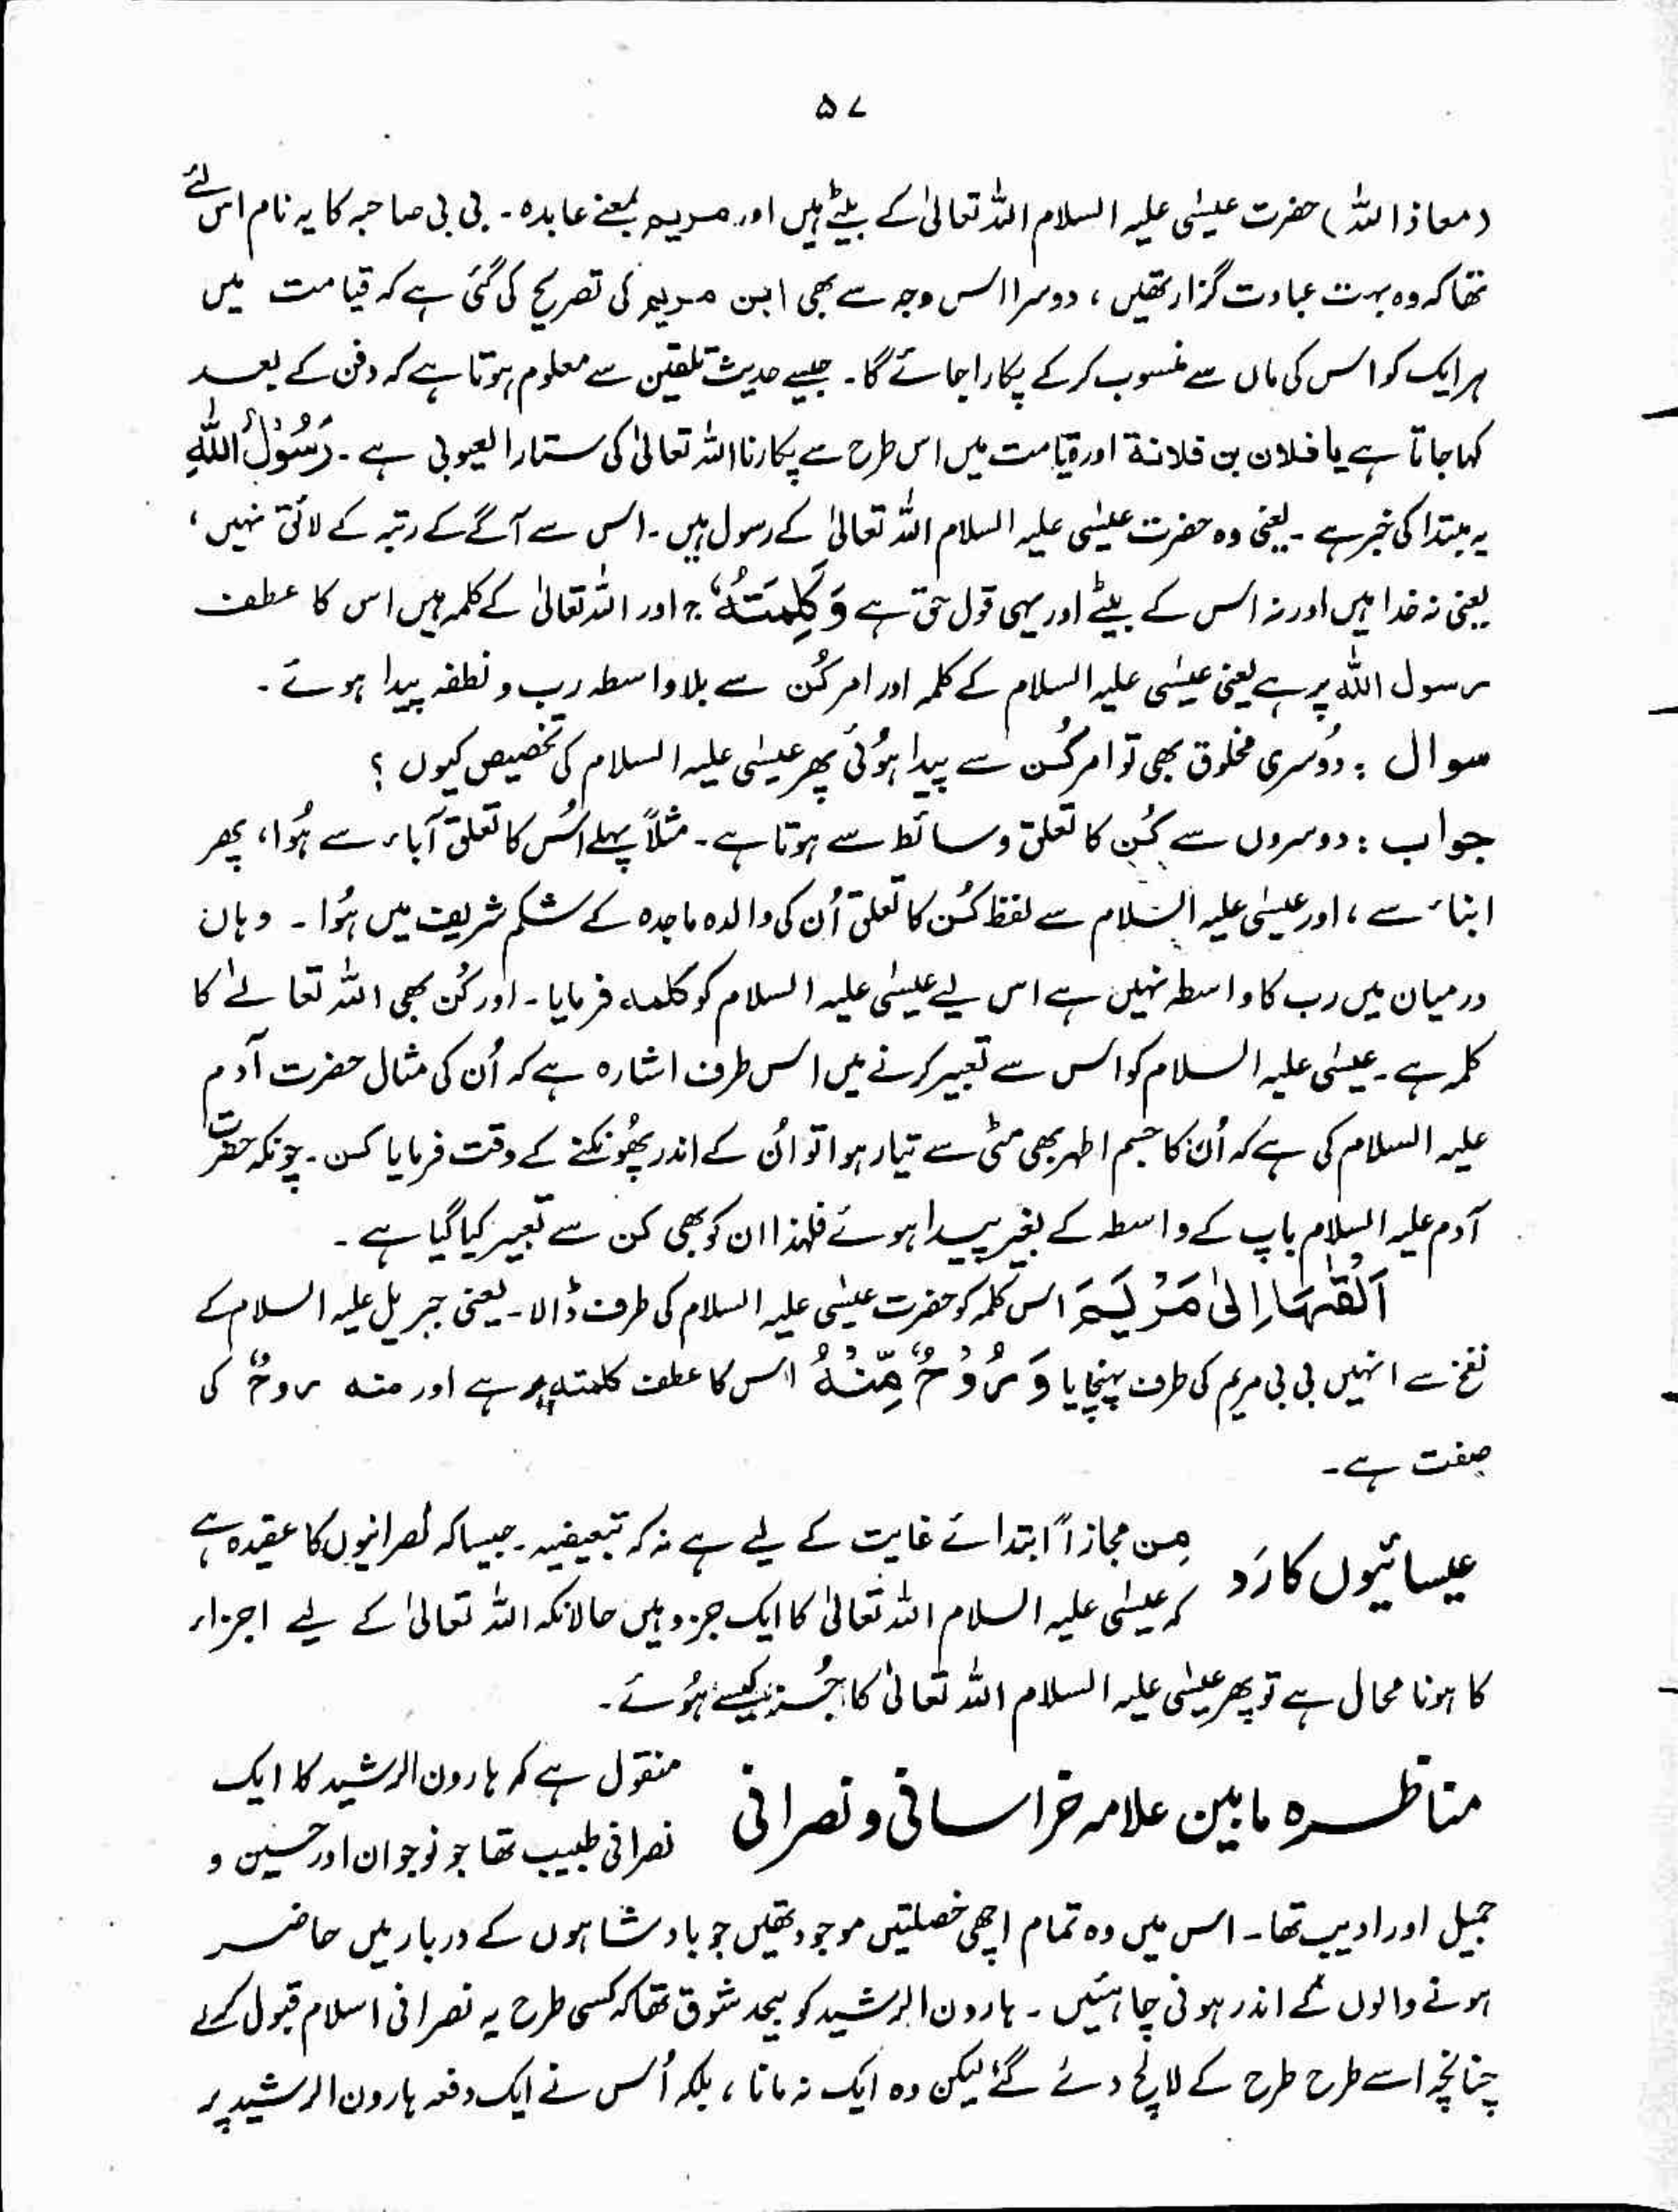 ۵۷
(معاذ اللہ) حضرت عیسٰی علیہ السلام اللہ تعالیٰ کے بیٹے ہیں اور مریم بمعنے عابدہ۔ بی بی صاحبہ کا یہ نام اس لئے
تھا کہ وہ بہت عبادت گزار تھیں، دوسرا اس وجہ سے بھی ابن مریم کی تصریح کی گئی ہے کہ قیامت میں
ہر ایک کو اس کی ماں سے منسوب کر کے پکارا جائے گا۔ جیسے حدیث تلقین سے معلوم ہوتا ہے کہ دفن کے بعد
کہا جاتا ہے یا فلان بن فلانة اور قیامت میں اس طرح سے پکارنا اللہ تعالیٰ کی ستار العیوبی ہے۔ رَسُوْلُ اللّٰهِ
یہ مبتدا کی خبر ہے۔ یعنی وہ حضرت عیسٰی علیہ السلام اللہ تعالیٰ کے رسول ہیں۔ اس سے آگے کے رتبہ کے لائق نہیں،
یعنی نہ خدا ہیں اور نہ اس کے بیٹے اور یہی قول حق ہے وَ كَلِمَتُهٗ ج اور اللہ تعالیٰ کے کلمہ ہیں اس کا عطف
رسول اللہ پر ہے یعنی عیسٰی علیہ السلام کے کلمہ اور امر کُن سے بلا واسطہ رب و نطفہ پیدا ہوئے۔
سوال : دُوسری مخلوق بھی تو امر کُن سے پیدا ہُوئی پھر عیسٰی علیہ السلام کی تخصیص کیوں ؟
جواب : دوسروں سے کُن کا تعلق وسائط سے ہوتا ہے۔ مثلاً پہلے اُس کا تعلق آباء سے ہُوا، پھر
ابناء سے، اور عیسٰی علیہ السّلام سے لفظ کُن کا تعلق اُن کی والدہ ماجدہ کے شکم شریف میں ہُوا ۔ وہاں
درمیان میں رب کا واسطہ نہیں ہے اس لیے عیسٰی علیہ السلام کو کلمہ فرمایا۔ اور کُن بھی اللہ تعالےٰ کا
کلمہ ہے۔ عیسٰی علیہ السلام کو اس سے تعبیر کرنے میں اس طرف اشارہ ہے کہ اُن کی مثال حضرت آدم
علیہ السلام کی ہے کہ اُن کا جسم اطہر بھی مٹی سے تیار ہوا تو اُن کے اندر پھُونکنے کے وقت فرمایا کن۔ چونکہ حضرت
آدم علیہ السلام باپ کے واسطہ کے بغیر پیدا ہوئے فلہذا ان کو بھی کن سے تعبیر کیا گیا ہے ۔
اَلْقٰىهَا اِلٰى مَرْيَمَ اس کلمہ کو حضرت عیسٰی علیہ السلام کی طرف ڈالا۔ یعنی جبریل علیہ السلام کے
نفخ سے انہیں بی بی مریم کی طرف پہنچایا وَ رُوْحٌ مِّنْهُ اس کا عطف کلمتہ پر ہے اور منه روحٌ کی
صفت ہے۔
عیسائیوں کا رَد
مِن مجازاً ابتدائے غایت کے لیے ہے نہ کہ تبعیضیہ۔ جیسا کہ نصرانیوں کا عقیدہ ہے
کہ عیسٰی علیہ السلام اللہ تعالیٰ کا ایک جزو ہیں حالانکہ اللہ تعالیٰ کے لیے اجزاء
کا ہونا محال ہے تو پھر عیسٰی علیہ السلام اللہ تعالیٰ کا جُز کیسے ہُوئے۔
مناظرہ مابین علامہ خراسانی و نصرانی
منقول ہے کہ ہارون الرشید کا ایک
نصرانی طبیب تھا جو نوجوان اور حسین و
جمیل اور ادیب تھا۔ اس میں وہ تمام اچھی خصلتیں موجود تھیں جو بادشاہوں کے دربار میں حاضر
ہونے والوں کے اندر ہونی چاہئیں۔ ہارون الرشید کو بیحد شوق تھا کہ کسی طرح یہ نصرانی اسلام قبول کرلے
چنانچہ اسے طرح طرح کے لالچ دئے گئے لیکن وہ ایک نہ مانا، بلکہ اُس نے ایک دفعہ ہارون الرشید پر